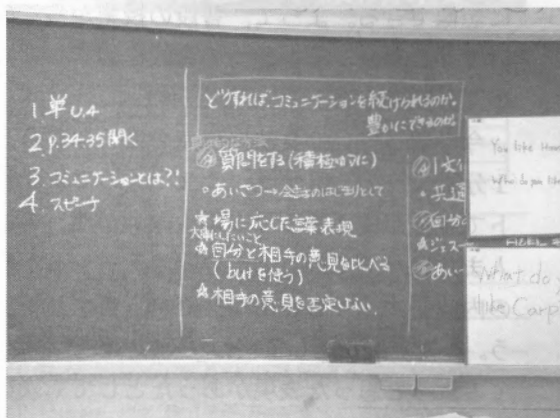 1 単 U.4
2 P.34.35 開く
3. コミュニケーションとは?!
4. スピーチ
どうすれば、コミュニケーションを続けられるのか。
豊かにできるのか。
質問をする(積極的に)
。あいさつ→会話のはじまりとして
☆場に応じた言葉・表現
大事にしたいこと
☆自分と相手の意見を比べる
(butを使う)
☆相手の意見を否定しない。
・共通
自分
ジェス
あい
You like
Who do you like
What do
like Carp